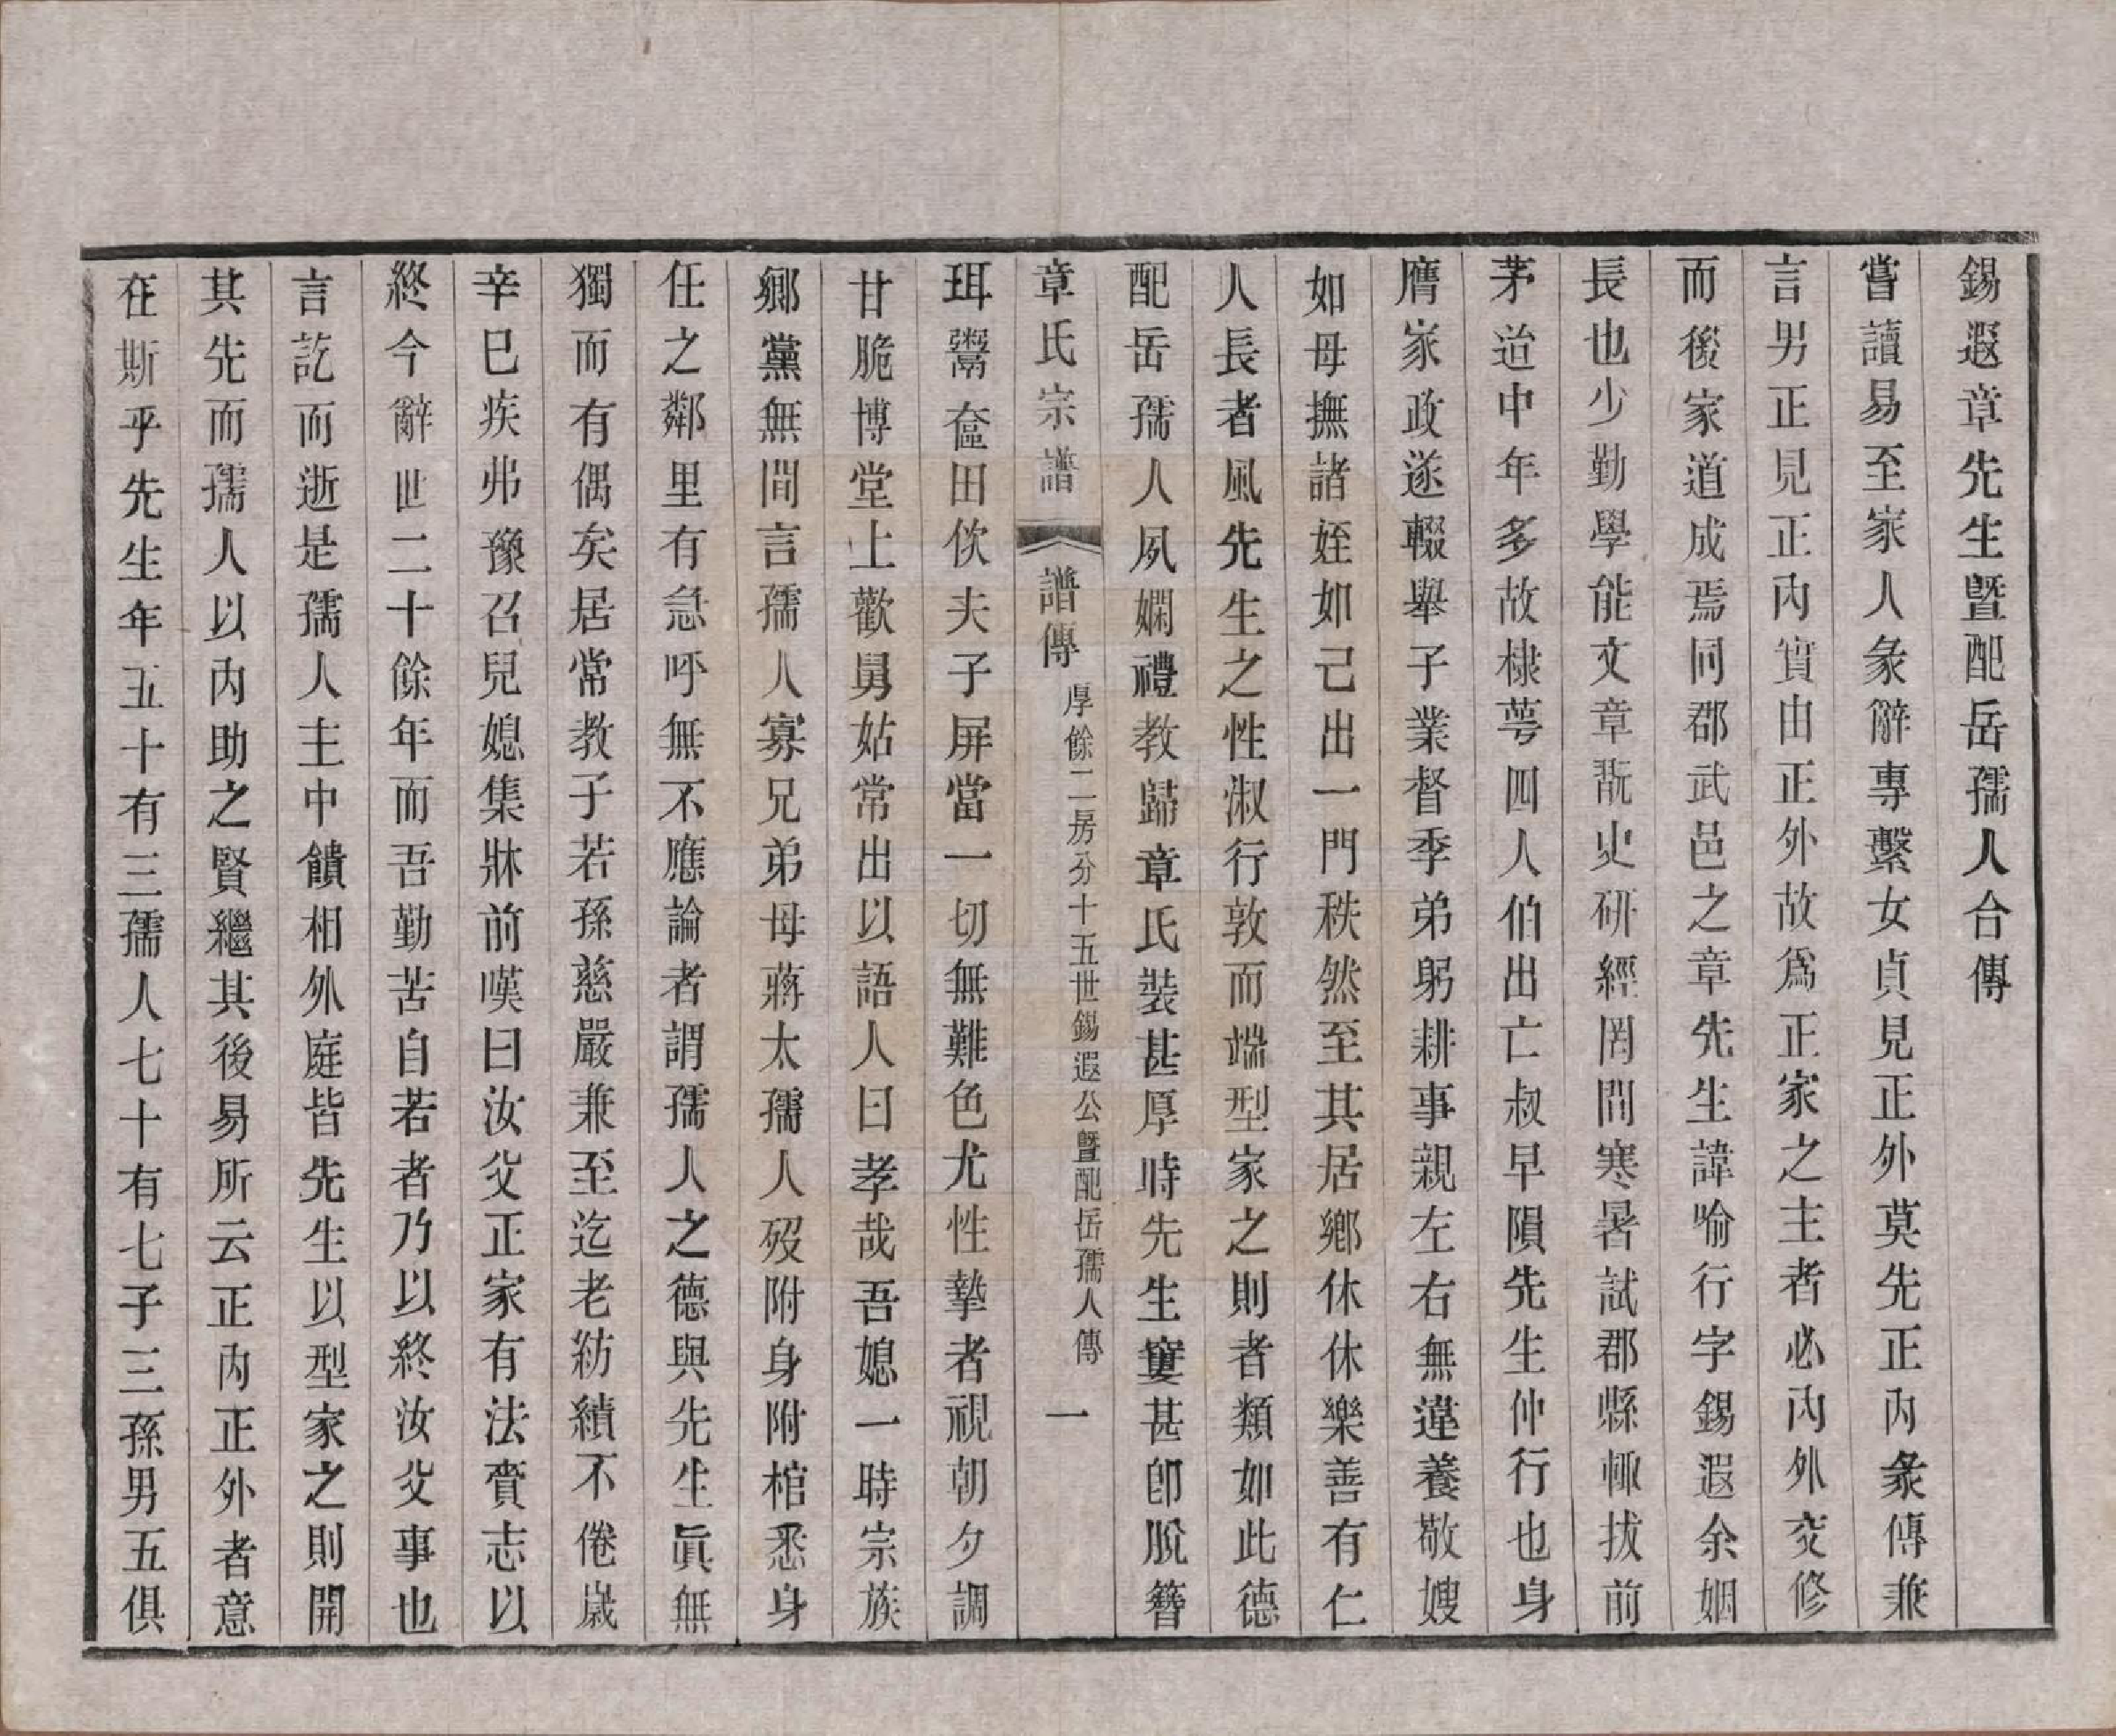 錫遐章先生暨配岳孺人合傳
嘗讀易至家人彖辭專繫女貞見正外莫先正內彖傳兼
言男正見正內實由正外故爲正家之主者必內外交修
而後家道成焉同郡武邑之章先生諱喻行字錫遐余姻
長也少勤學能文章翫史研經罔間寒暑試郡縣輒拔前
茅迨中年多故棣萼四人伯出亡叔早隕先生仲行也身
膺家政遂輟舉子業督季弟躬耕事親左右無違養敬嫂
如母撫諸姪如己出一門秩然至其居鄉休休樂善有仁
人長者風先生之性淑行敦而端型家之則者類如此德
配岳孺人夙嫻禮教歸章氏裝甚厚時先生窶甚卽脫簪
章氏宗譜 譜傳 厚餘二房分十五世錫遐公暨配岳孺人傳 一
珥鬻奩田佽夫子屏當一切無難色尤性摯者視朝夕調
甘脆博堂上歡舅姑常出以語人曰孝哉吾媳一時宗族
鄉黨無間言孺人寡兄弟母蔣太孺人歿附身附棺悉身
任之鄰里有急呼無不應論者謂孺人之德與先生眞無
獨而有偶矣居常教子若孫慈嚴兼至迄老紡績不倦歲
辛巳疾弗豫召兒媳集牀前嘆曰汝父正家有法賫志以
終今辭世二十餘年而吾勤苦自若者乃以終汝父事也
言訖而逝是孺人主中饋相外庭皆先生以型家之則開
其先而孺人以內助之賢繼其後易所云正內正外者意
在斯乎先生年五十有三孺人七十有七子三孫男五俱